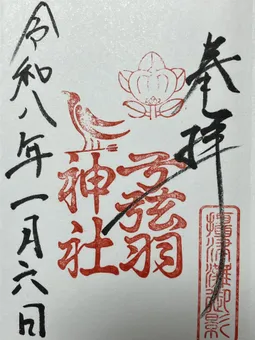 奉拝
弓弦羽
神社
摂津灘御影
令和八年一月六日